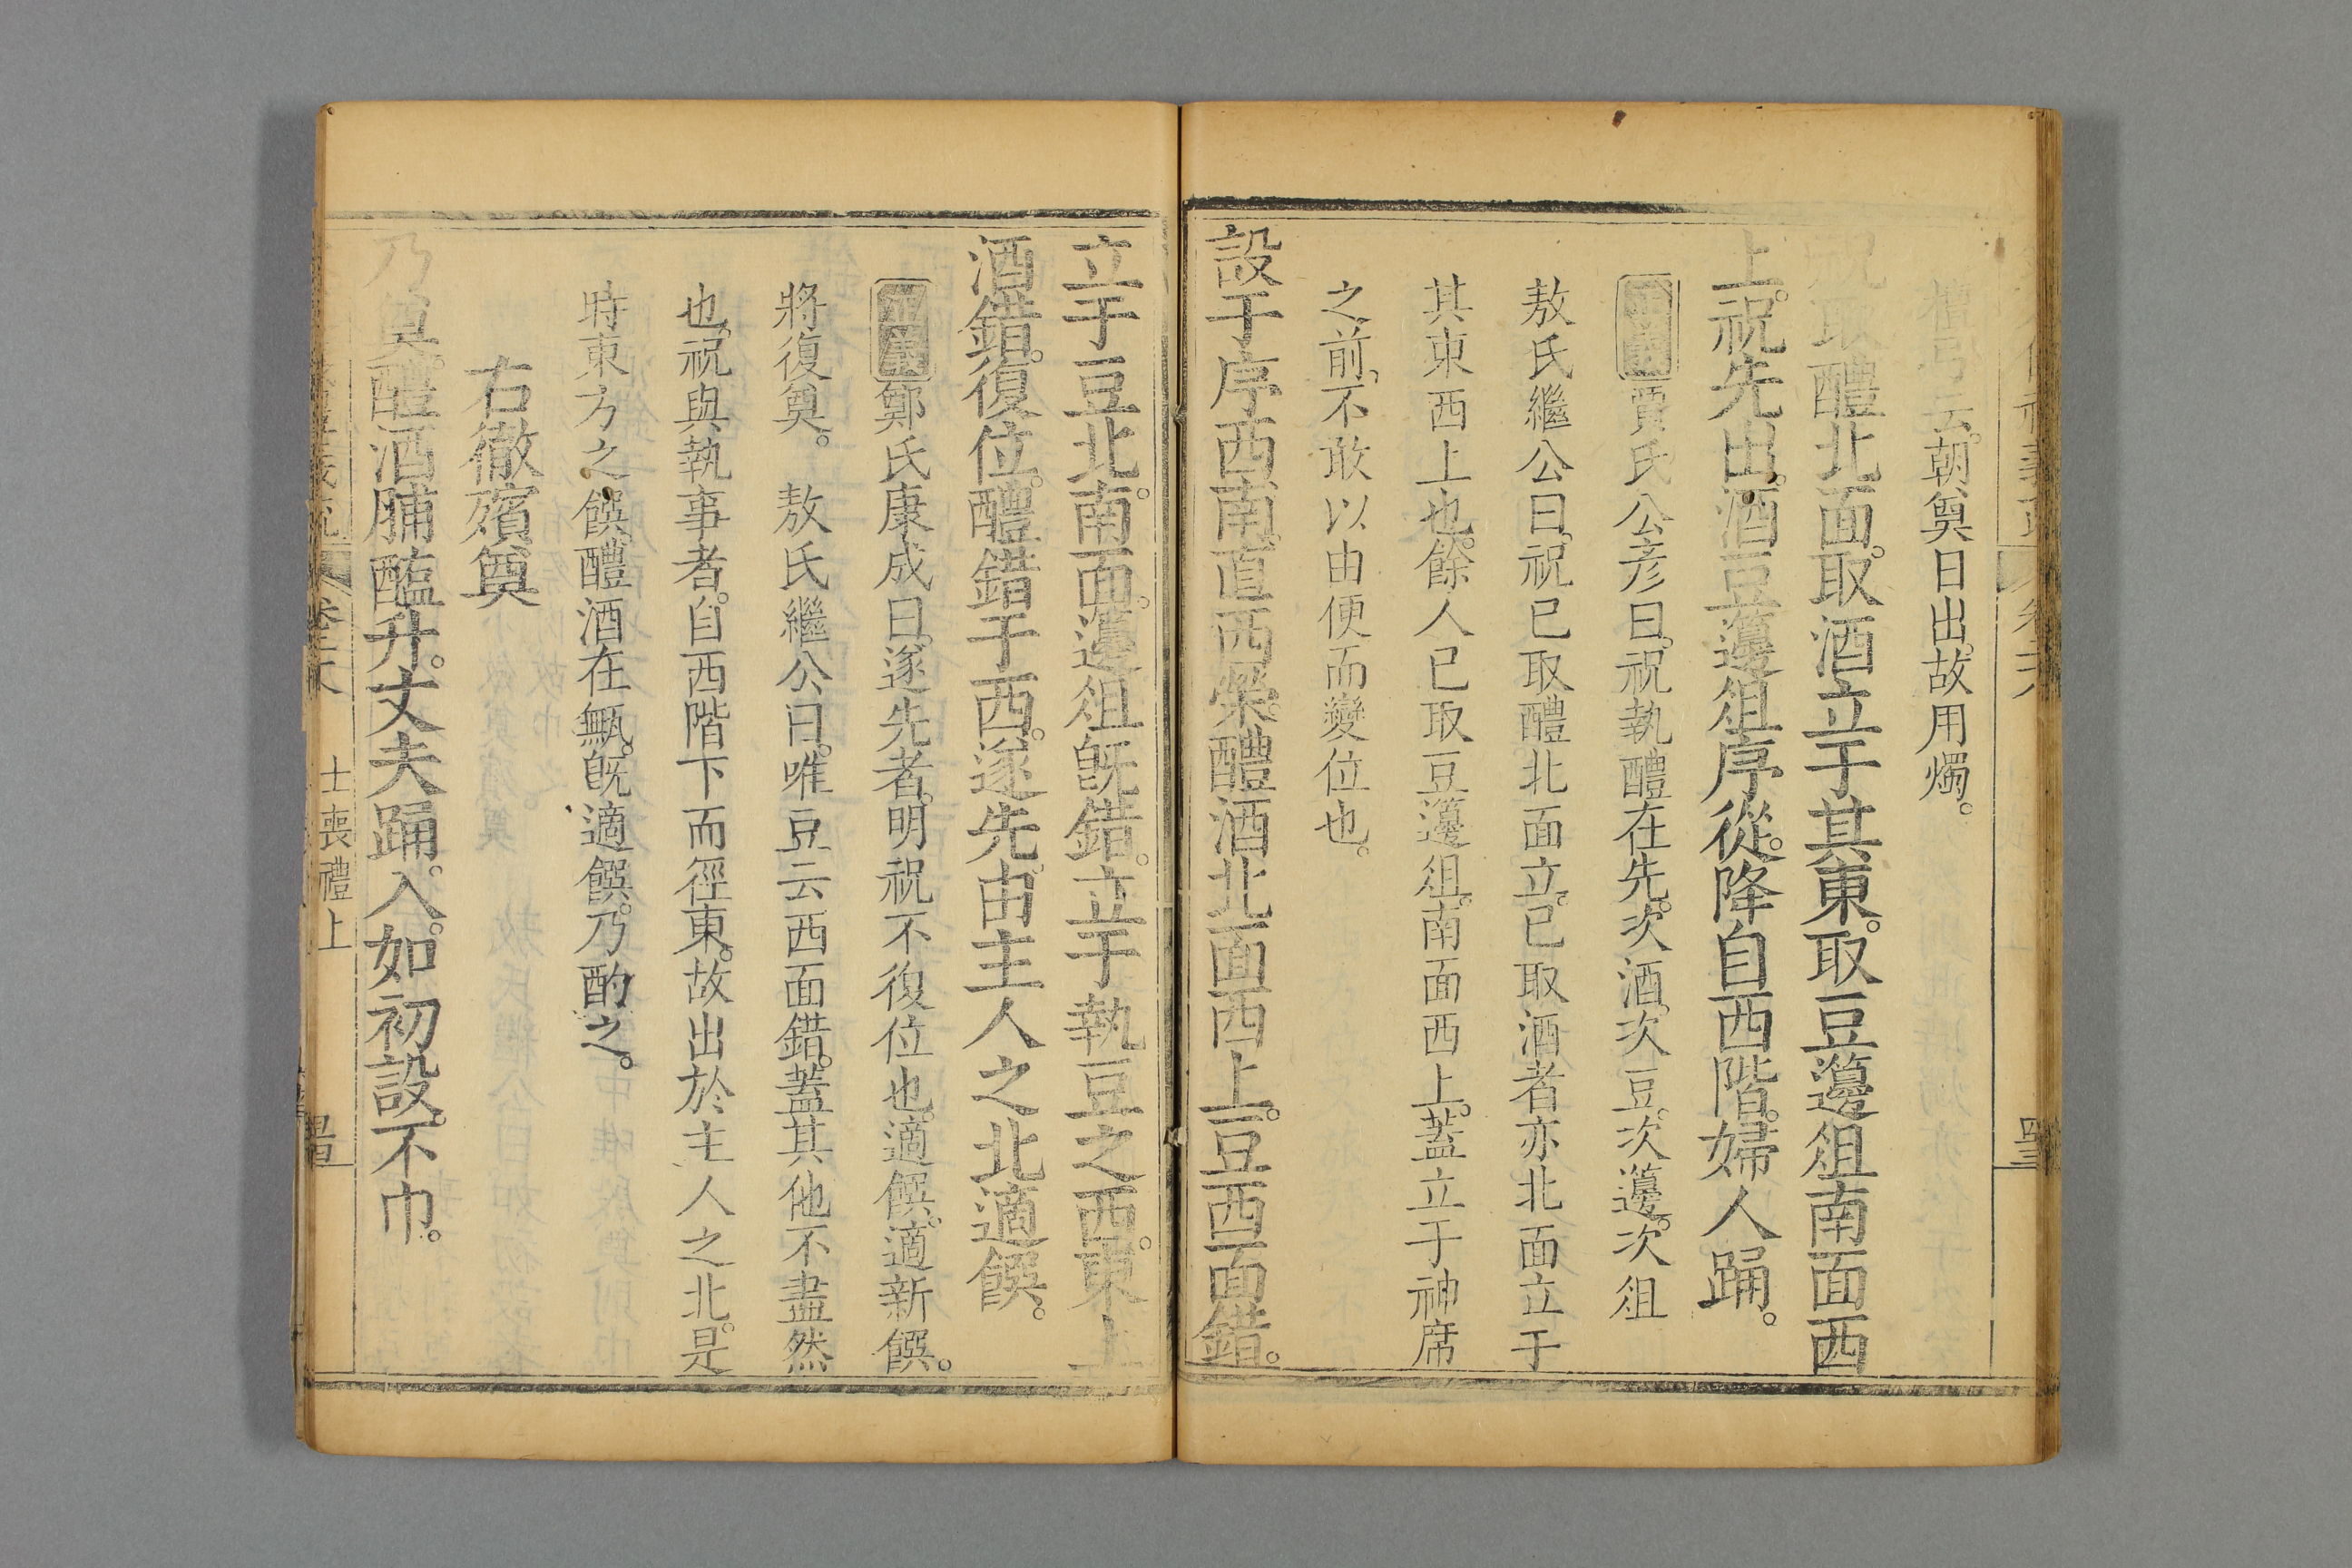 檀弓云。朝奠日出。故用燭。
祝取醴北面。取酒立于其東。取豆籩俎南面西
上。祝先出。酒豆籩俎序從。降自西階。婦人踊。
正義賈氏公彥曰。祝執醴在先。次酒。次豆。次籩。次俎
敖氏繼公曰。祝已取醴北面立。已取酒者亦北面立于
其東西上也。餘人已取豆籩俎。南面西上。蓋立于神席
之前。不敢以由便而變位也。
設于序西南。直西榮。醴酒北面西上。豆西面錯。
立于豆北。南面。籩俎旣錯。立于執豆之西。東上
酒錯。復位。醴錯于西。遂先。由主人之北適饌。
正義鄭氏康成曰。遂先者。明祝不復位也。適饌。適新饌。
將復奠。 敖氏繼公曰。唯豆云西面錯。蓋其他不盡然
也。祝與執事者。自西階下而徑東。故出於主人之北。是
時東方之饌。醴酒在甒。旣適饌。乃酌之。
右徹殯奠
乃奠。醴酒脯醢升。丈夫踊。入。如初設。不巾。
士喪禮上